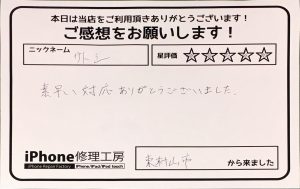 本日は当店をご利用頂きありがとうございます!
ご感想をお願いします!
ニックネーム
サトシ
星評価 ☆☆☆☆☆
素早い対応ありがとうございました。
iPhone修理工房
iPhone Repair Factory iPhone/iPad/iPod touch
東村山市 から来ました